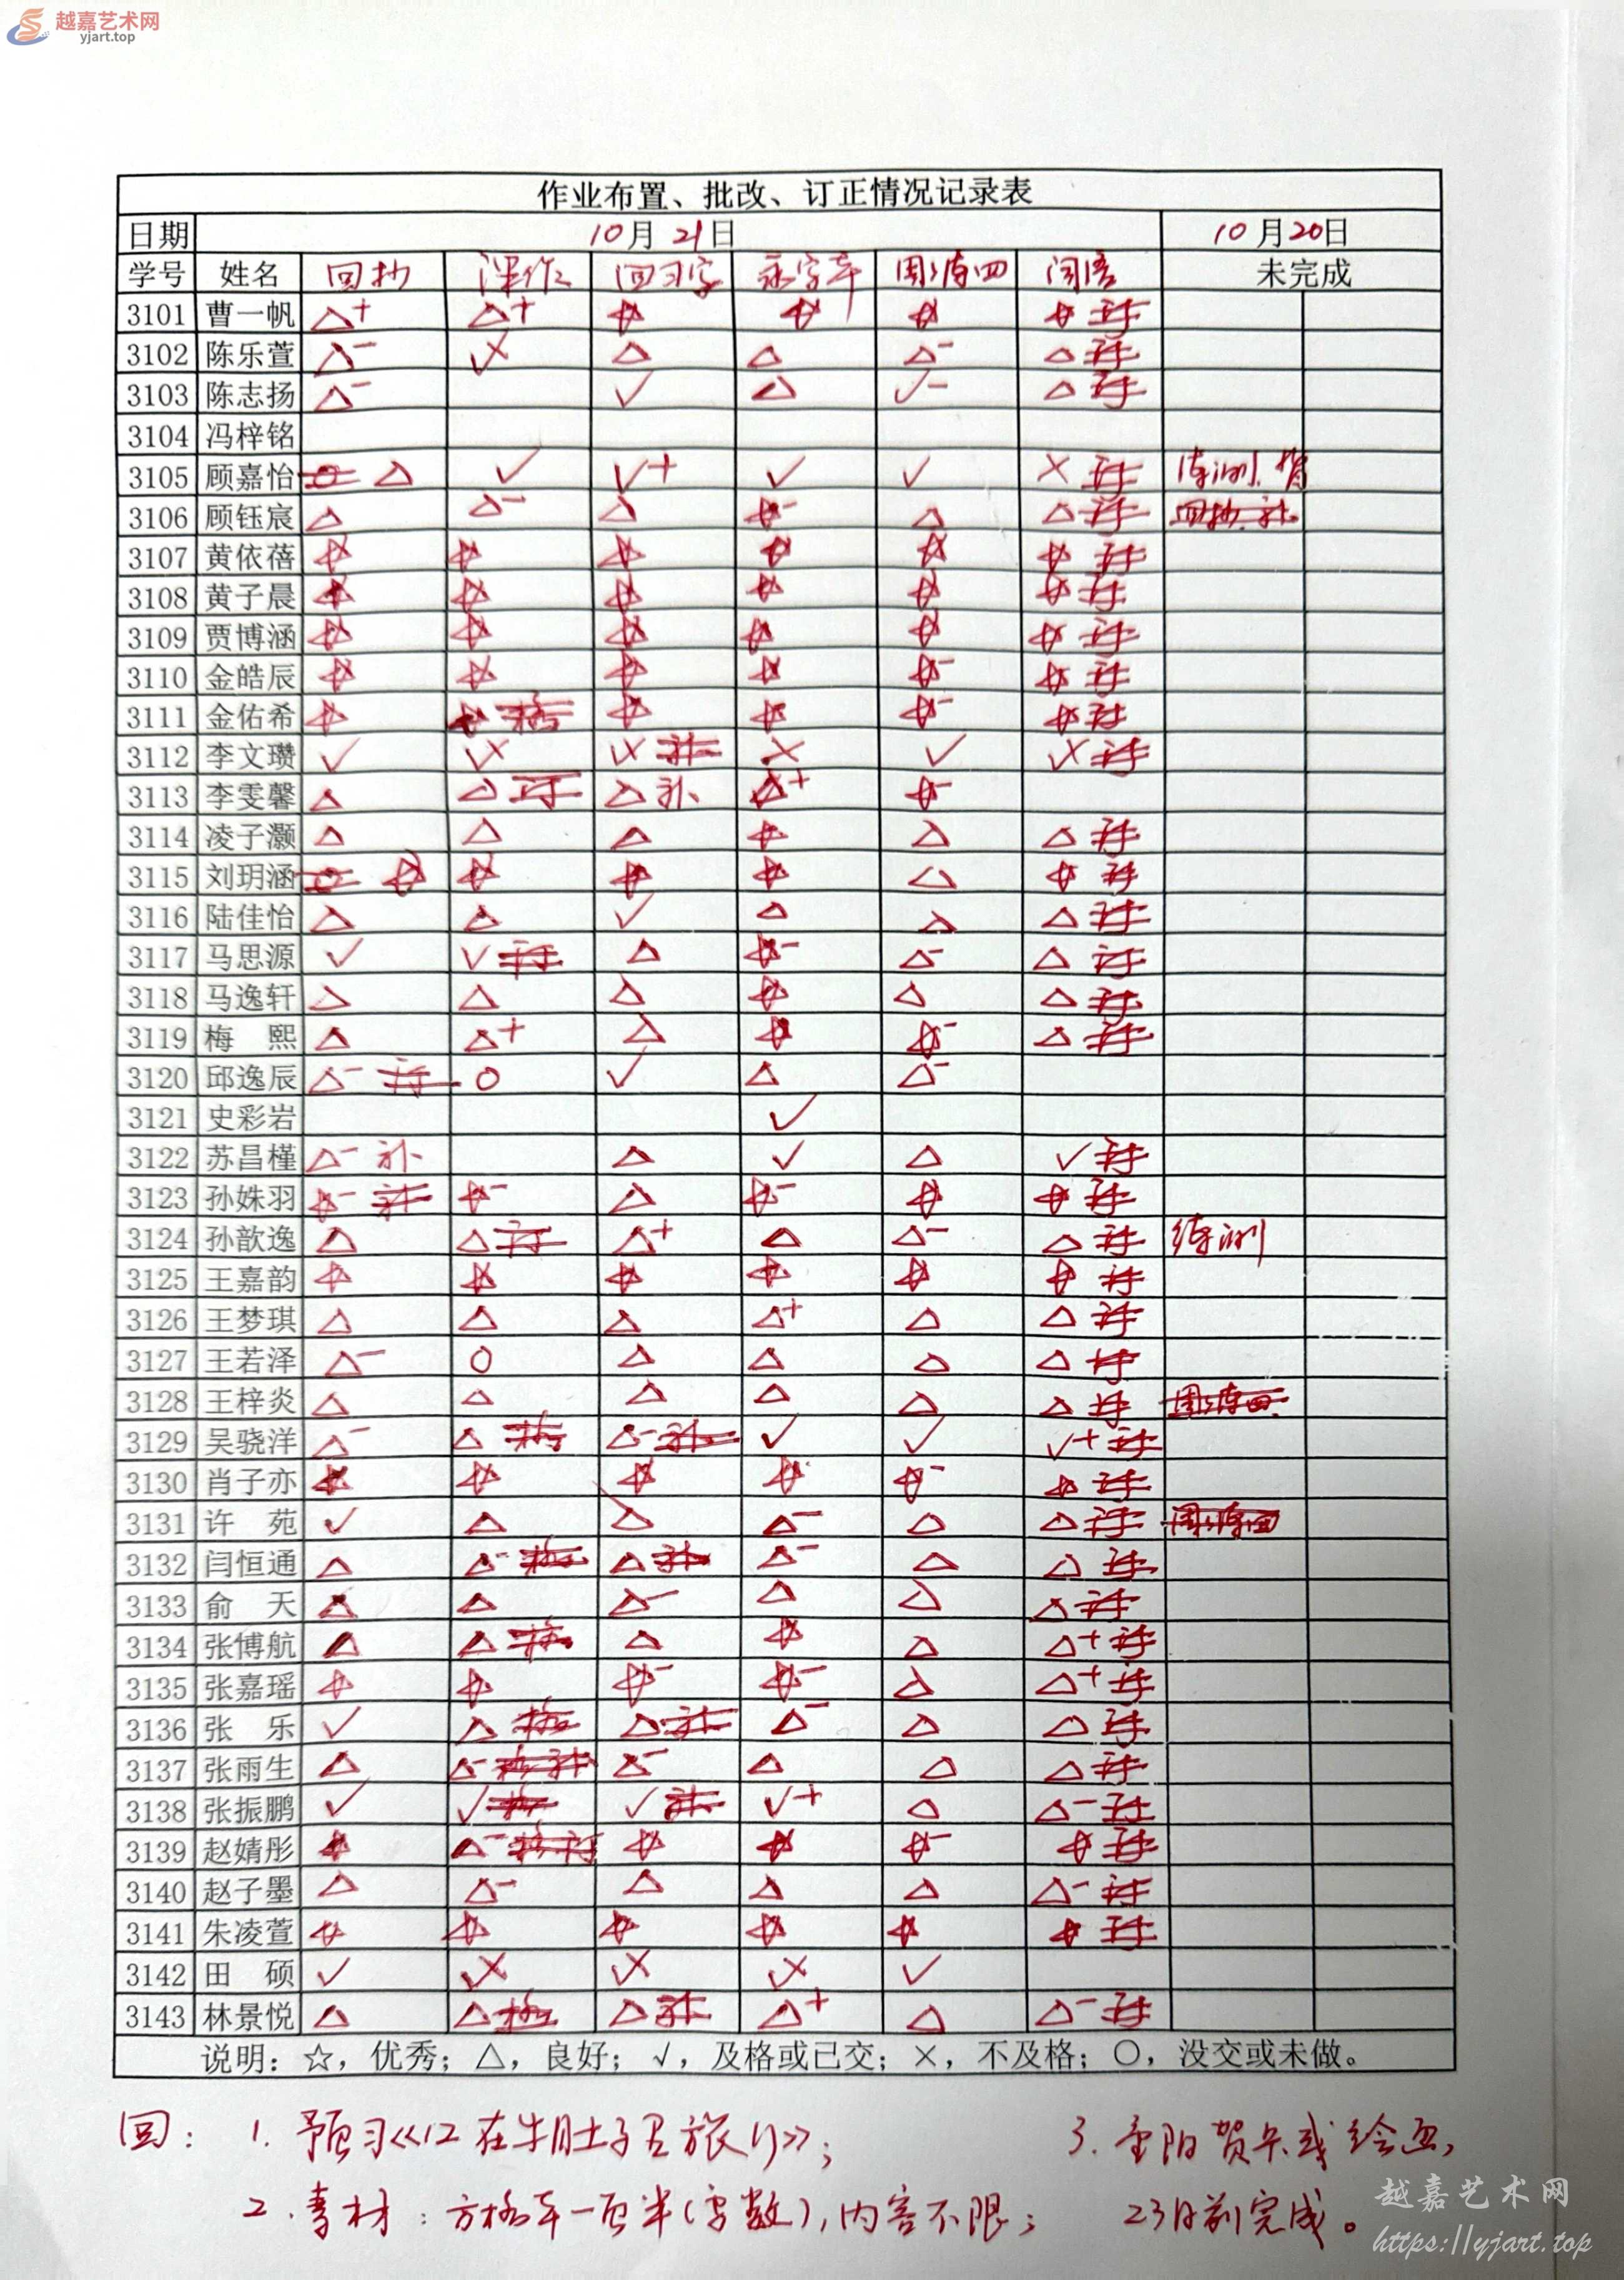 越嘉艺术网
yjart.top
作业布置、批改、订正情况记录表
日期 10月21日 10月20日
学号 姓名 回抄 课作 回习字 永字本 周练四 阅读 未完成
3101 曹一帆 △+ △+ ☆ ☆ ☆ ☆ 订
3102 陈乐萱 △- √× △ △ △- △ 订
3103 陈志扬 △- √ △ √- △ 订
3104 冯梓铭
3105 顾嘉怡 ○ △ √ √+ √ √ × 订 练测、
3106 顾钰宸 △ △- △ ☆- △ △ 订 回抄 补
3107 黄依蓓 ☆ ☆ ☆ ☆ ☆ ☆ 订
3108 黄子晨 ☆ ☆ ☆ ☆ ☆ ☆ 订
3109 贾博涵 ☆ ☆ ☆ ☆ ☆ ☆ 订
3110 金皓辰 ☆ ☆ ☆ ☆ ☆- ☆ 订
3111 金佑希 ☆ ☆ 格 ☆ ☆ ☆- ☆ 订
3112 李文瓒 √ √× √× 补 × √ √× 订
3113 李雯馨 △ △ 订 △ 补 △+ ☆-
3114 凌子灏 △ △ △ ☆ △ △ 订
3115 刘玥涵 ○ ☆ ☆ ☆ ☆ △ ☆ 订
3116 陆佳怡 △ △ √ △ △ △ 订
3117 马思源 √ √ 订 △ ☆- △- △ 订
3118 马逸轩 △ △ △ ☆ △ △ 订
3119 梅 熙 △ △+ △ ☆ ☆- △ 订
3120 邱逸辰 △- 订 ○ √ △ △-
3121 史彩岩 √
3122 苏昌槿 △- 补 △ √ △ √ 订
3123 孙姝羽 ☆- 补 ☆- △ ☆- ☆ ☆ 订
3124 孙歆逸 △ △ 订 △+ △ △- △ 订 练测
3125 王嘉韵 ☆ ☆ ☆ ☆ ☆ ☆ 订
3126 王梦琪 △ △ △ △+ △ △ 订
3127 王若泽 △- ○ △ △ △ △ 订
3128 王梓炎 △ △ △ △ △ △ 订 周练四
3129 吴骁洋 △- △ 格 △- 补 √ √ √+ 订
3130 肖子亦 ☆ ☆ ☆ ☆ ☆- ☆ 订
3131 许 苑 √ △ △ △- △ △ 订 周练四
3132 闫恒通 △ △- 格 △ 补 △- △ △ 订
3133 俞 天 △ △ △- △ △ △ 订
3134 张博航 △ △ 格 △ ☆ △ △+ 订
3135 张嘉瑶 ☆ ☆ ☆- ☆- △ △+ 订
3136 张 乐 √ △ 格 △ 补 △- △ △ 订
3137 张雨生 △ △- 格 补 △- △ △ △ 订
3138 张振鹏 √ √ 格 √ 补 √+ △ △- 订
3139 赵婧彤 ☆ △- 格 订 ☆ ☆ ☆- ☆ 订
3140 赵子墨 △ △- △ △ △ △- 订
3141 朱凌萱 ☆ ☆ ☆ ☆ ☆ ☆ 订
3142 田 硕 √ √× √× √× √
3143 林景悦 △ △ 格 △ 补 △+ △ △- 订
说明：☆，优秀；△，良好；√，及格或已交；×，不及格；○，没交或未做。
回： 1. 预习《12 在牛肚子里旅行》； 3. 重阳贺卡或绘画，
2. 素材：方格本一页半(字数)，内容不限； 23日前完成。
越嘉艺术网
https://yjart.top